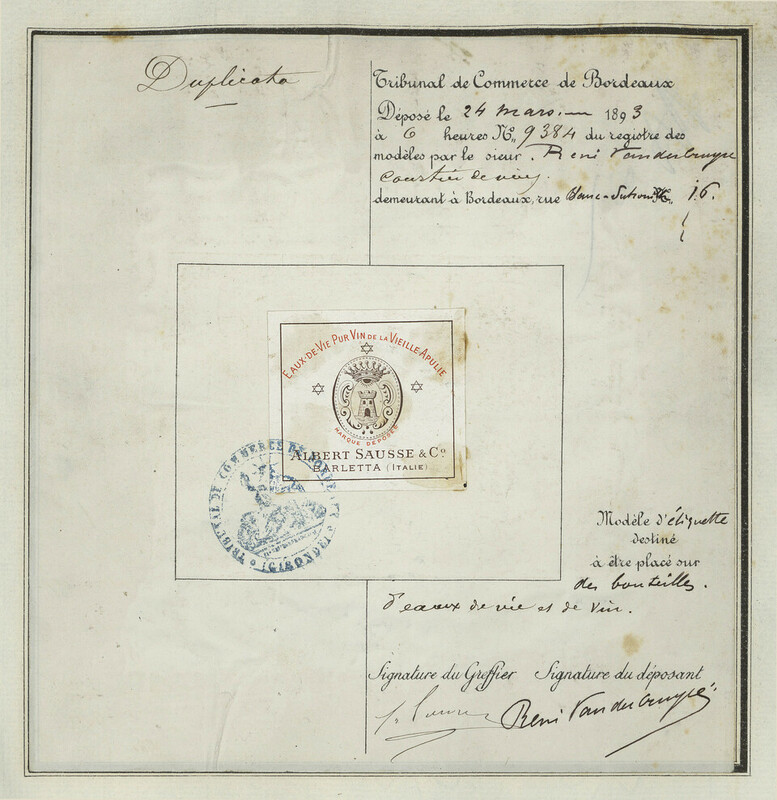 Duplicata
Tribunal de Commerce de Bordeaux
Déposé le 24 mars 1893
à 6 heures No. 9384 du registre des
modèles par le sieur. René Vanderbruyé
Courtier de vins.
demeurant à Bordeaux, rue 16.
EAUX-DE-VIE PUR VIN DE LA VIEILLE APULIE
MARQUE DÉPOSÉE
ALBERT SAUSSE & Co.
BARLETTA (ITALIE)
TRIBUNAL DE COMMERCE DE BORDEAUX
(GIRONDE)
Modèle d'étiquette
destiné
à être placé sur
des bouteilles.
d'eaux de vie et de vin.
Signature du Greffier Signature du déposant
René Vanderbruyé